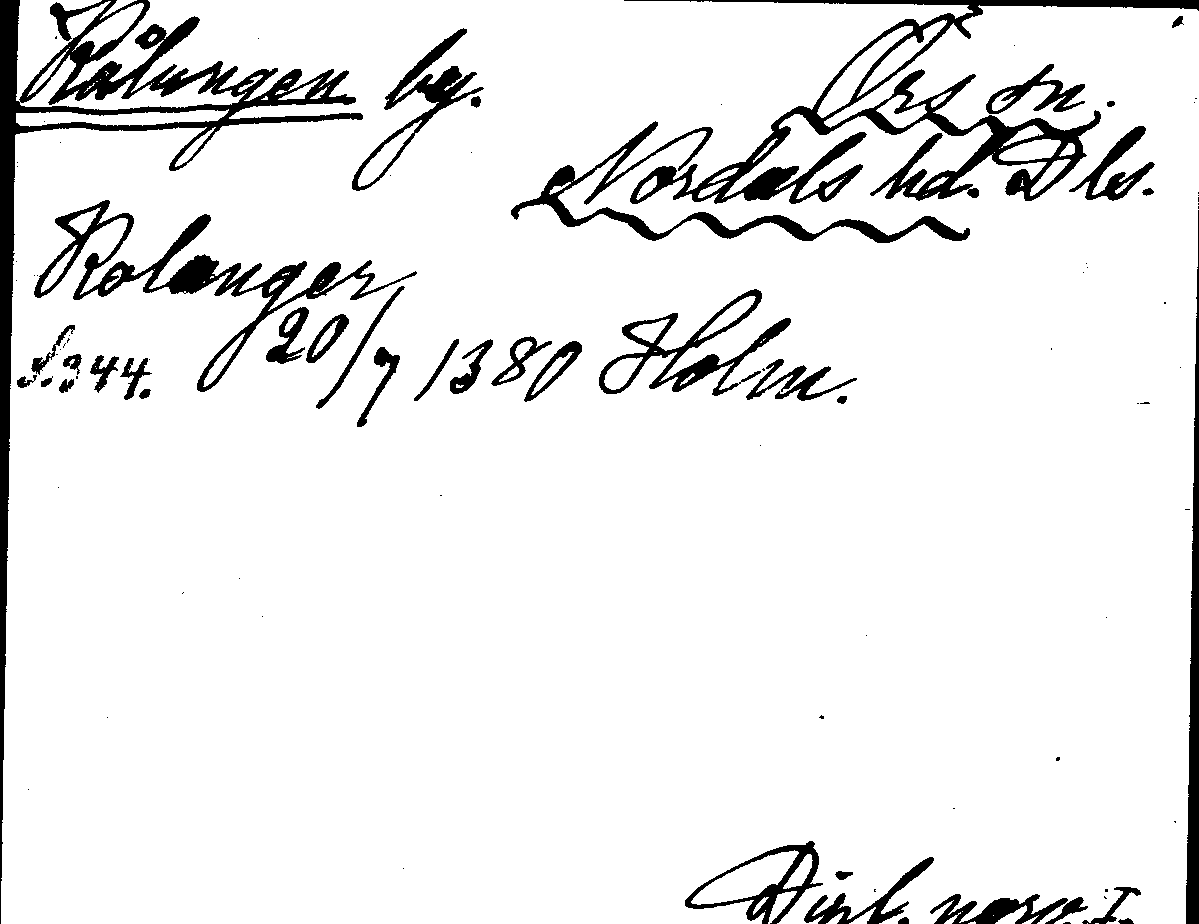 Rålungen by. Örs sn.
Nordals hd. Dls.
Rolanger
S. 344. 20/7 1380 Holm.
Dipl. norv. I.